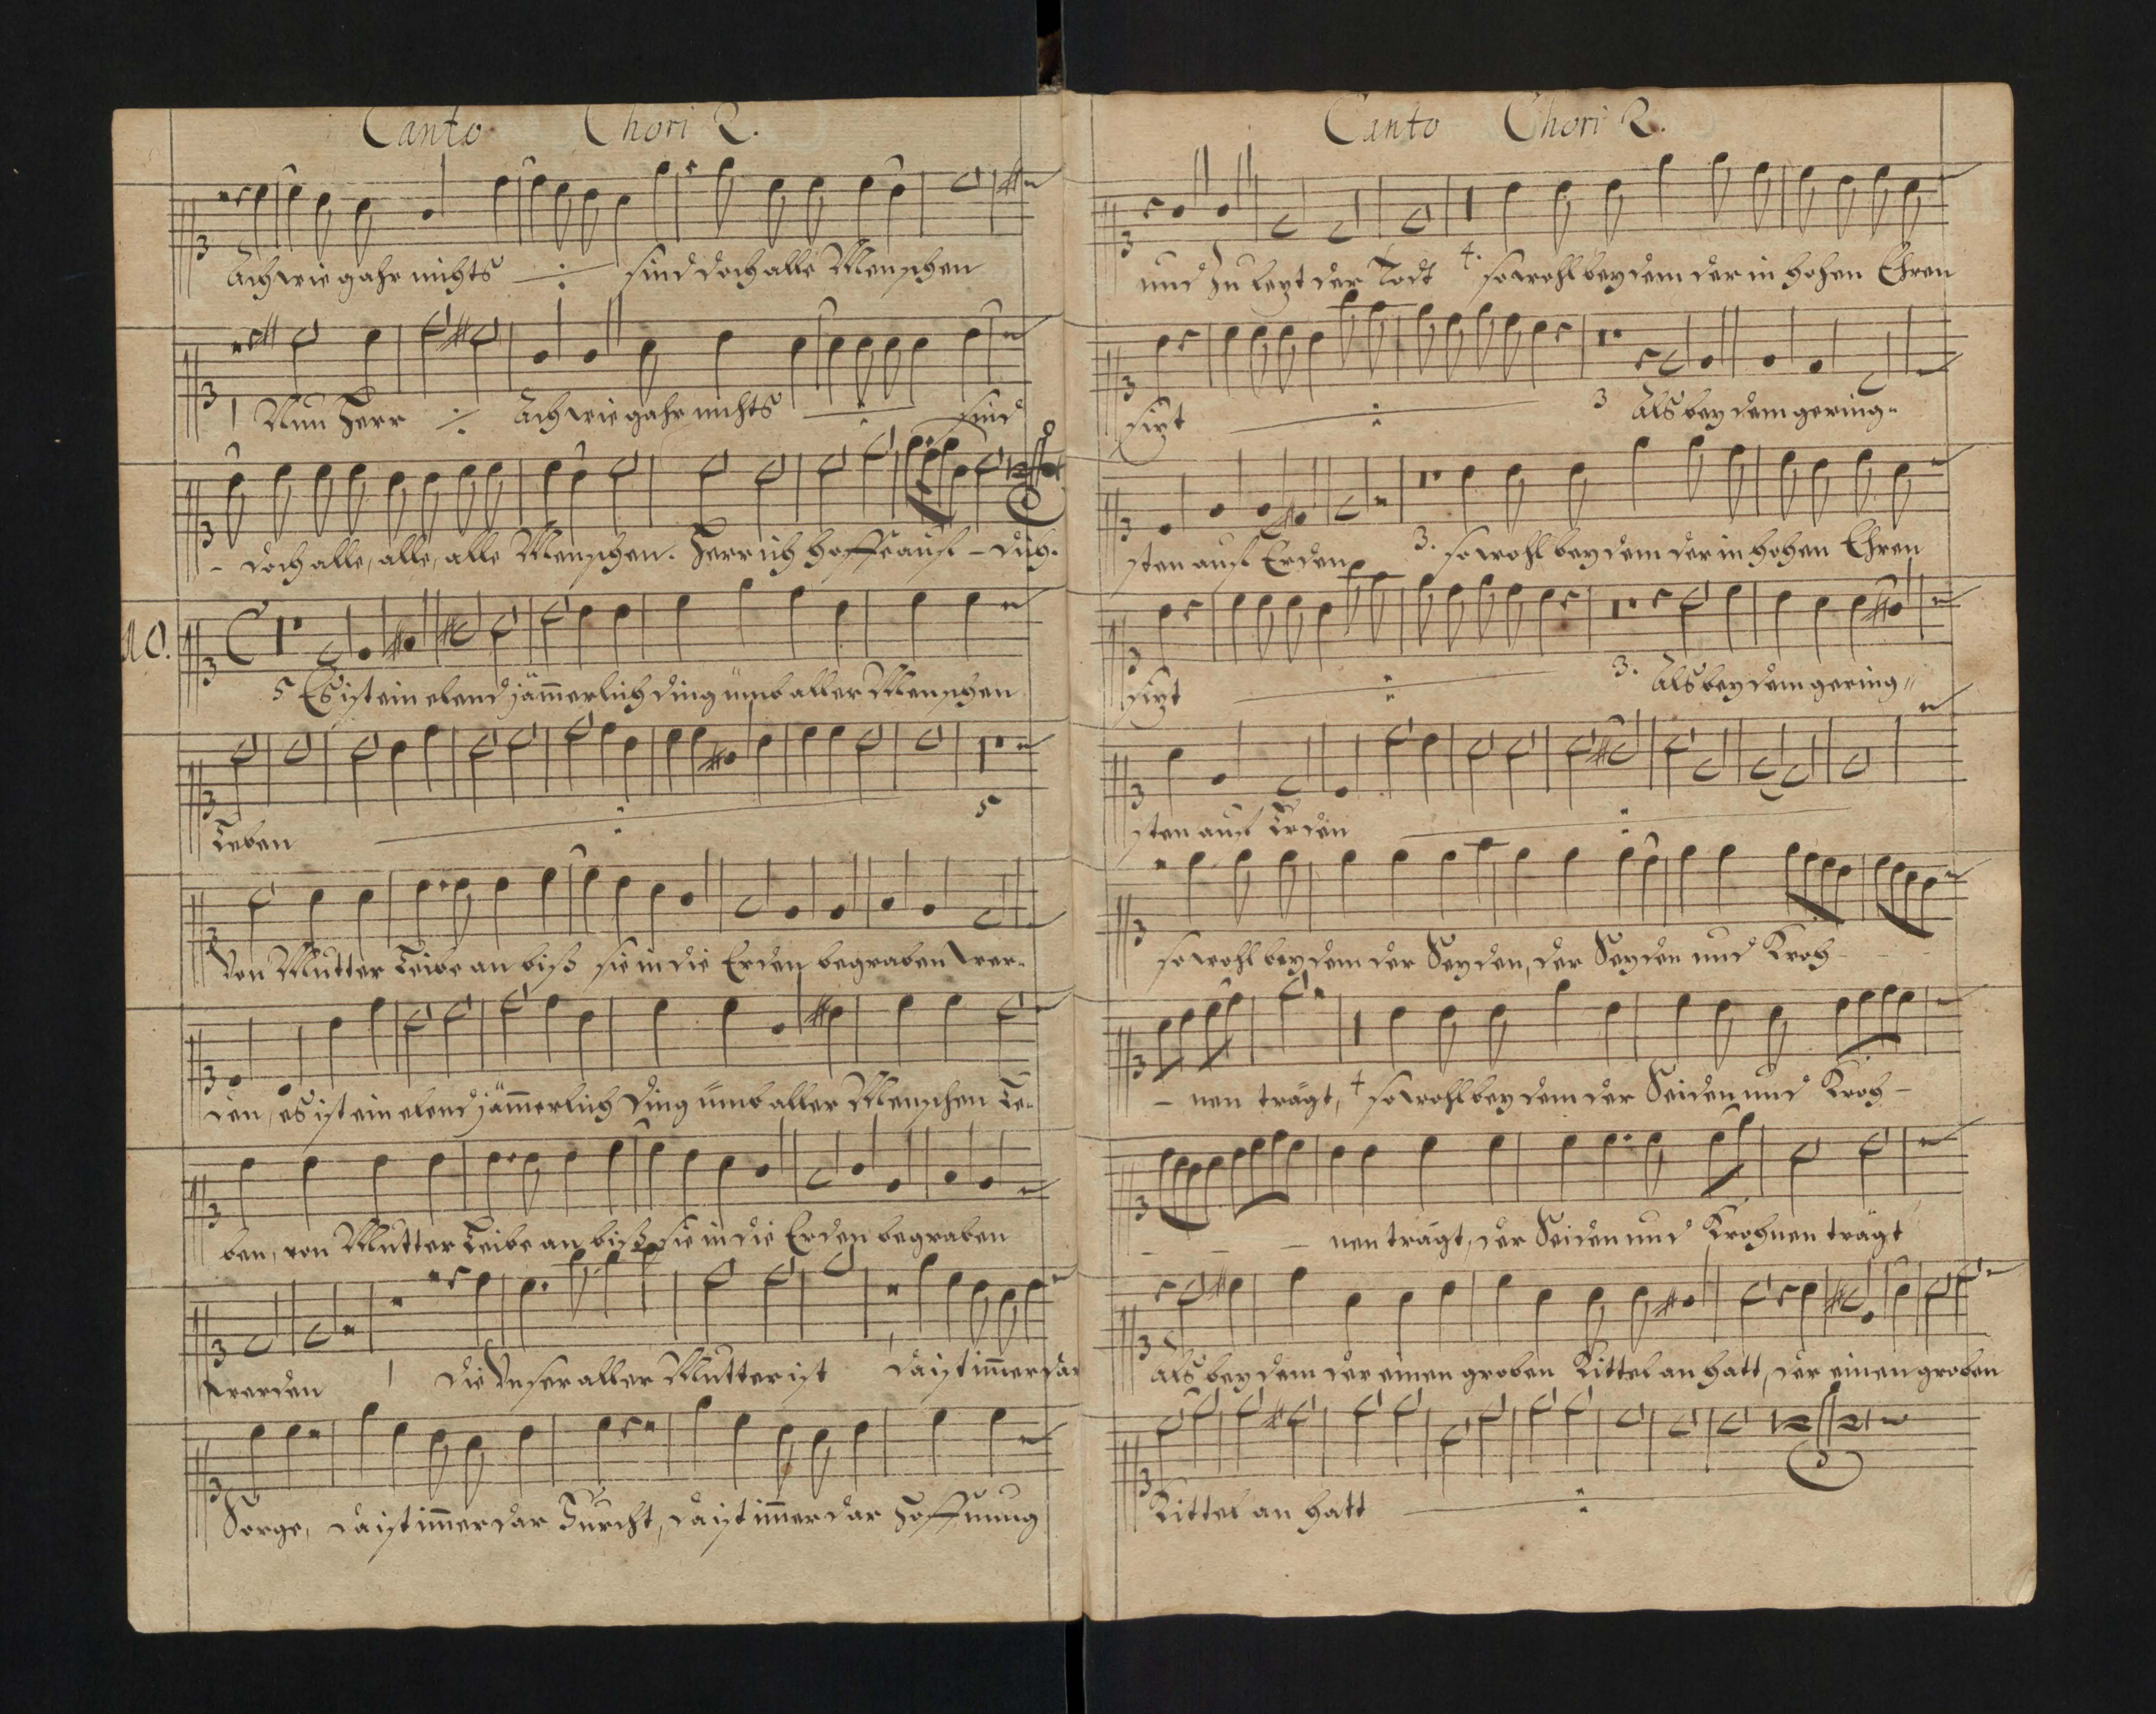 Canto Chori 2.
Ach wie gahr nichts ·/· sind doch alle Menschen
1 Nun Herr ·/· Ach wie gahr nichts ·/· sind
- doch alle, alle, alle Menschen. Herr ich hoffe auf - dich.
10.
5 Es ist ein elend jämmerlich ding ümb aller Menschen
Leben ·/· 5
Von Mutter Leibe an biß sie in die Erden begraben wer-
den, es ist ein elend jämmerlich Ding ümb aller Menschen Le-
ben, von Mutter Leibe an biß sie in die Erden begraben
werden 1 die Unser aller Mutter ist da ist immer dar
Sorge, da ist immer dar Furcht, da ist immer dar Hoffnung
Canto Chori 2.
und zu lezt der Todt 4. so wohl bey dem der in hohen Ehren
sizt ·/· 3 Als bey dem gering-
sten auf Erden 3. so wohl bey dem der in hohen Ehren
sizt ·/· 3. Als bey dem gering-
sten auf Erden ·/·
so wohl bey dem der Seyden, der Seyden und Kroh -
- nen trägt, 4 so wohl bey dem der Seiden und Kroh -
- - - nen trägt, der Seiden und Krohnen trägt
Als bey dem der einen groben Kittel an hatt, der einen groben
Kittel an hatt ·/·